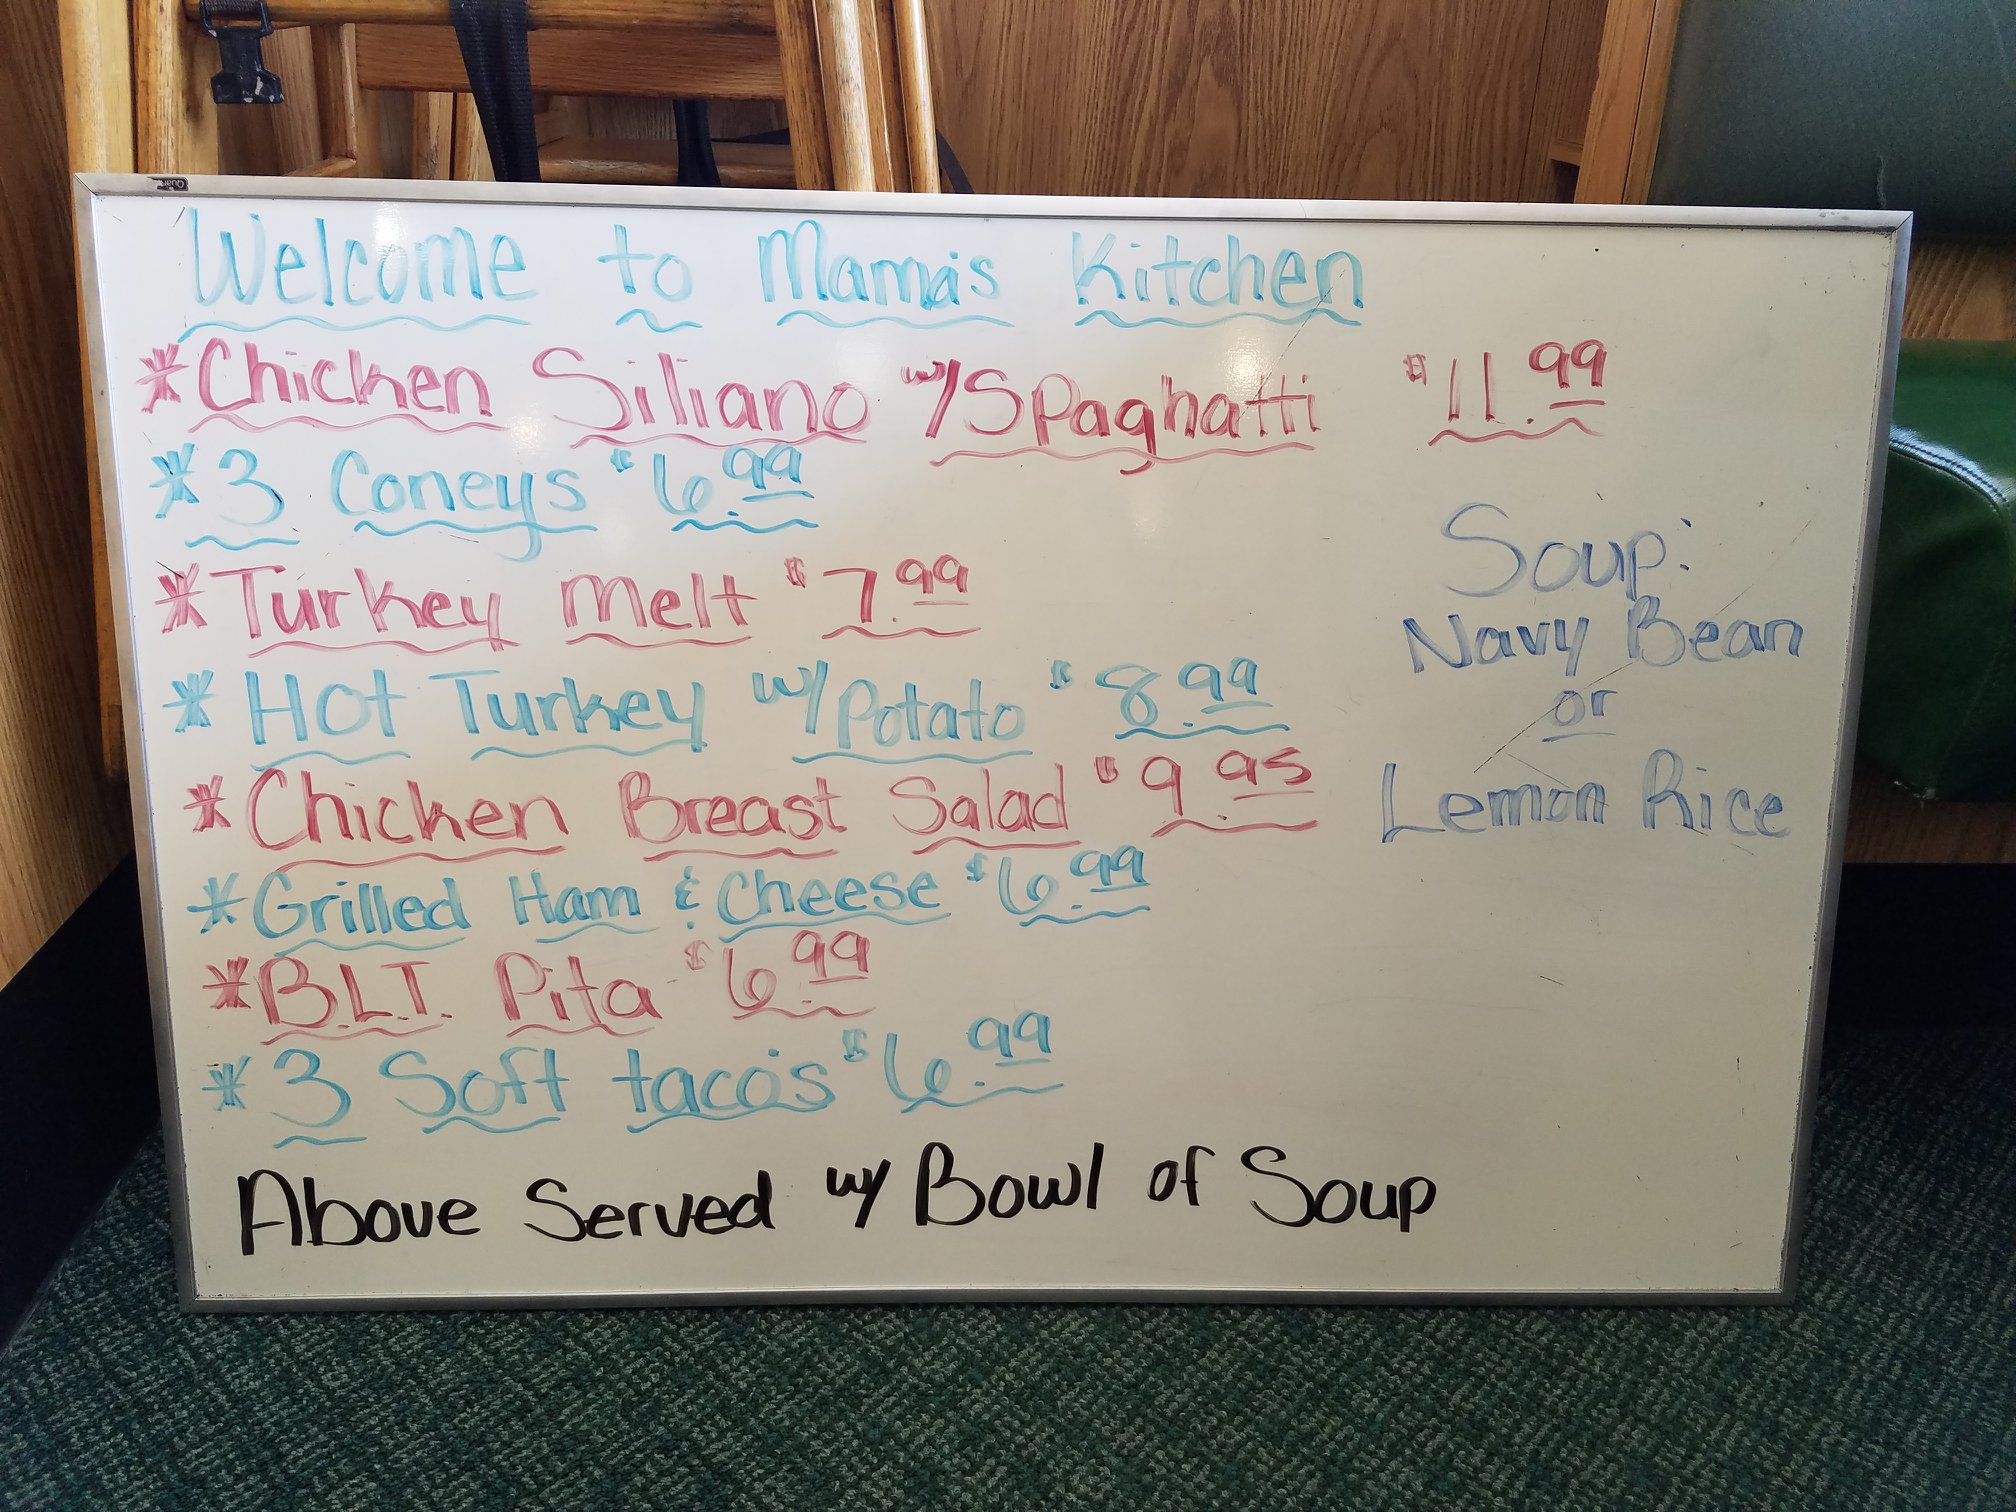 Welcome to Mama's Kitchen
*Chicken Siliano w/Spaghatti $11.99
*3 Coneys $6.99
*Turkey Melt $7.99
*Hot Turkey w/Potato $8.99
*Chicken Breast Salad $9.95
*Grilled Ham & Cheese $6.99
*B.L.T. Pita $6.99
*3 Soft taco's $6.99
Above Served w/ Bowl of Soup
Soup:
Navy Bean
or
Lemon Rice